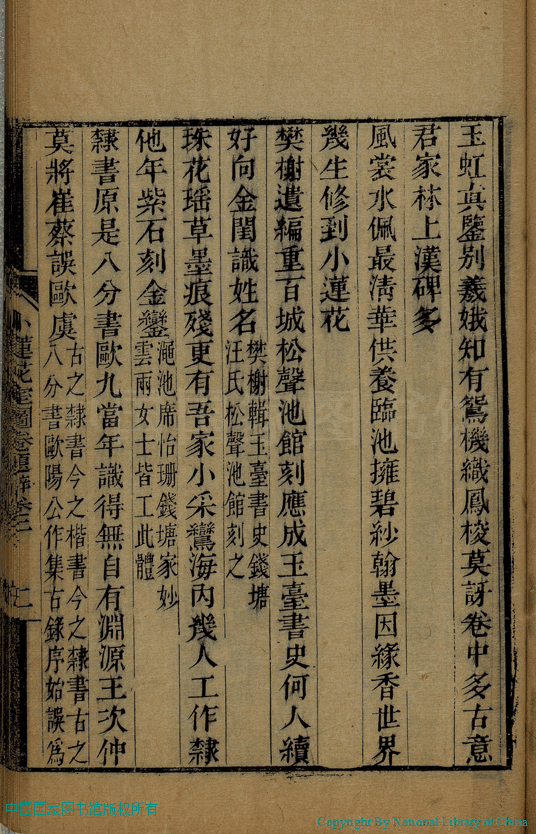 玉虹真鑒別羲娥知有鴛機織鳳梭莫訝卷中多古意
君家牀上漢碑多
風裳水佩最清華供養臨池擁碧紗翰墨因緣香世界
幾生修到小蓮花
樊榭遺編重百城松聲池館刻應成玉臺書史何人續
好向金閨識姓名樊榭輯玉臺書史錢塘
汪氏松聲池館刻之
珠花瑶草墨痕殘更有吾家小采鸞海內幾人工作隸
他年紫石刻金鑾澠池席怡珊錢塘家妙
雲雨女士皆工此體
隸書原是八分書歐九當年識得無自有淵源王次仲
莫將崔蔡誤歐虞古之隸書今之楷書今之隸書古之
八分書歐陽公作集古錄序始誤爲
小蓮花室圖卷題辭卷二
二
中国国家图书馆版权所有
Copyright By National Library of China